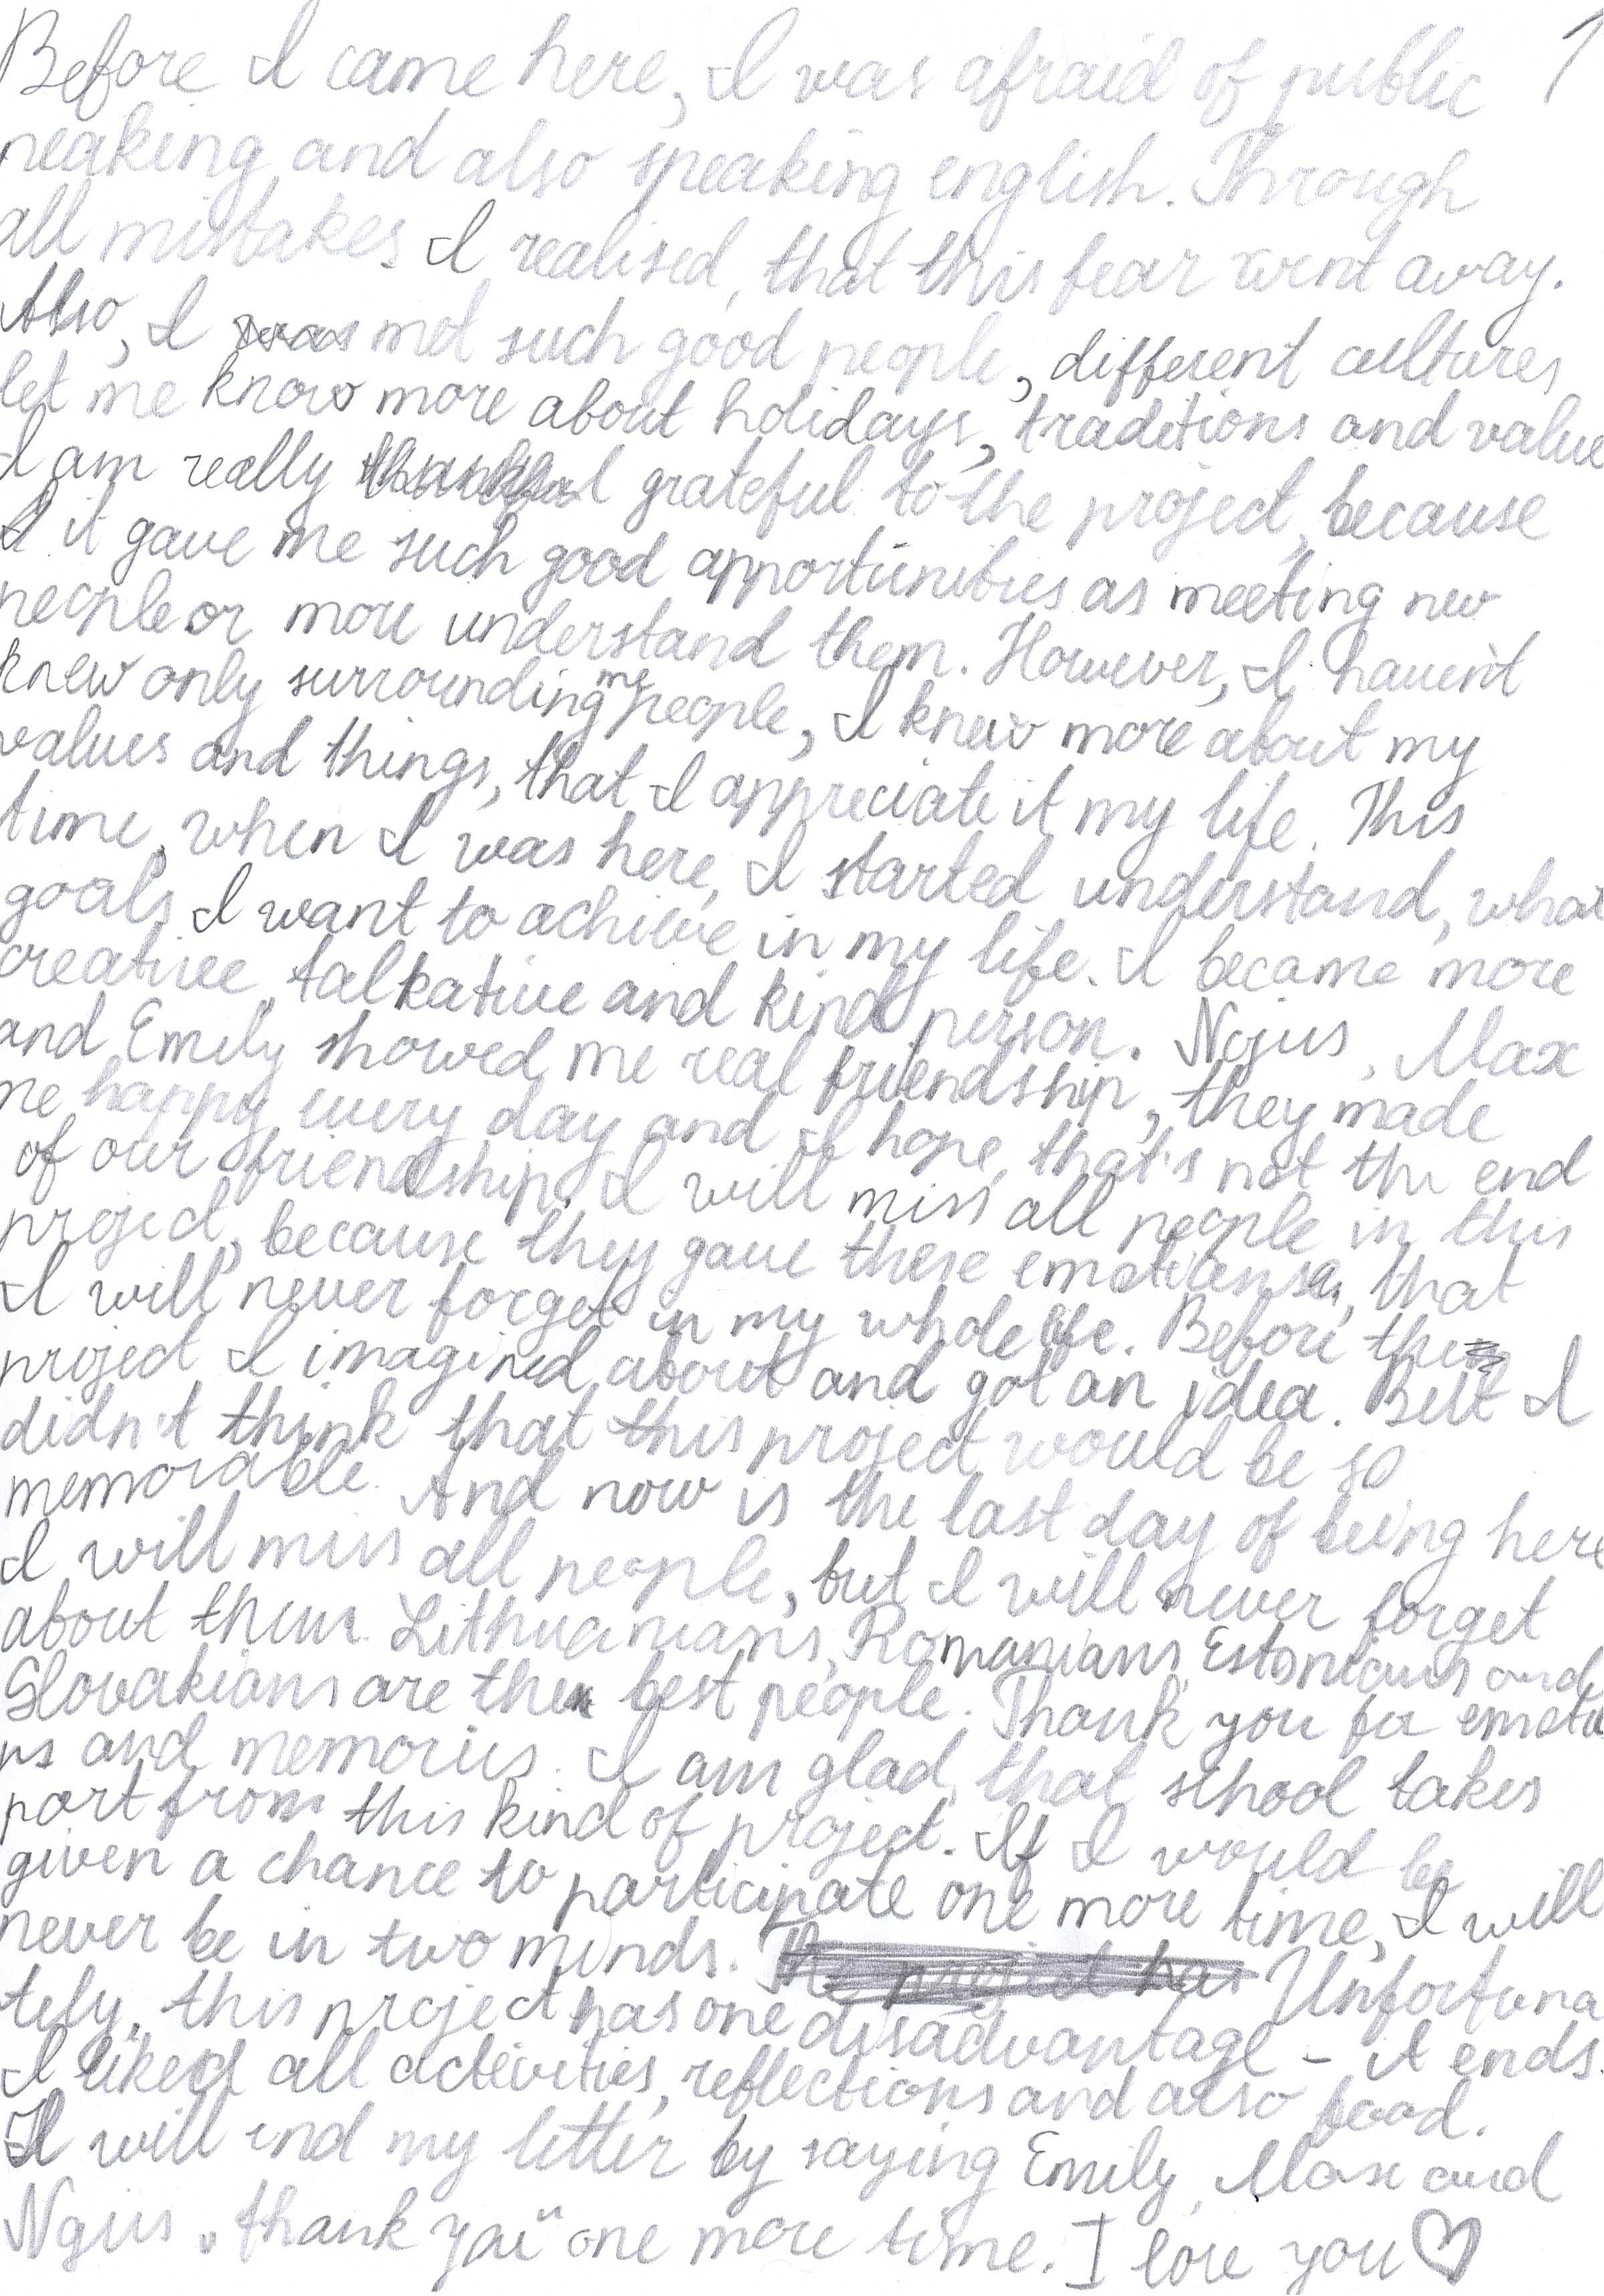 Before I came here, I was afraid of public 1
peaking and also speaking english. Through
all mistakes I realised, that this fear went away.
Also, I was met such good people, different cultures
let me know more about holidays, traditions and value
I am really thankful grateful to the project, because
I it gave me such good apportunities as meeting new
people or more understand them. However, I haven't
knew only surrounding me people, I knew more about my
values and things, that I appreciate it my life. This
time, when I was here, I started understand, what
goals I want to achieve in my life. I became more
creative, talkative and kind person. Nojus, Max
and Emily showed me real friendship, they made
me happy every day and I hope, that's not the end
of our friendship. I will miss all people in this
project, because they gave these emotions, that
I will never forget in my whole life. Before the
project I imagined about and got an idea. But I
didn't think that this project would be so
memorable. And now is the last day of being here
I will miss all people, but I will never forget
about them. Lithuanians, Romanians, Estonians and
Slovakians are the best people. Thank you for emotio
ns and memories. I am glad, that school takes
part from this kind of project. If I would be
given a chance to participate one more time, I will
never be in two minds. The project has Unfortuna
tely, this project has one disadvantage - it ends.
I liked all activities, reflections and also food.
I will end my letter by saying Emily, Max and
Nojus „thank you“ one more time. I love you ♡